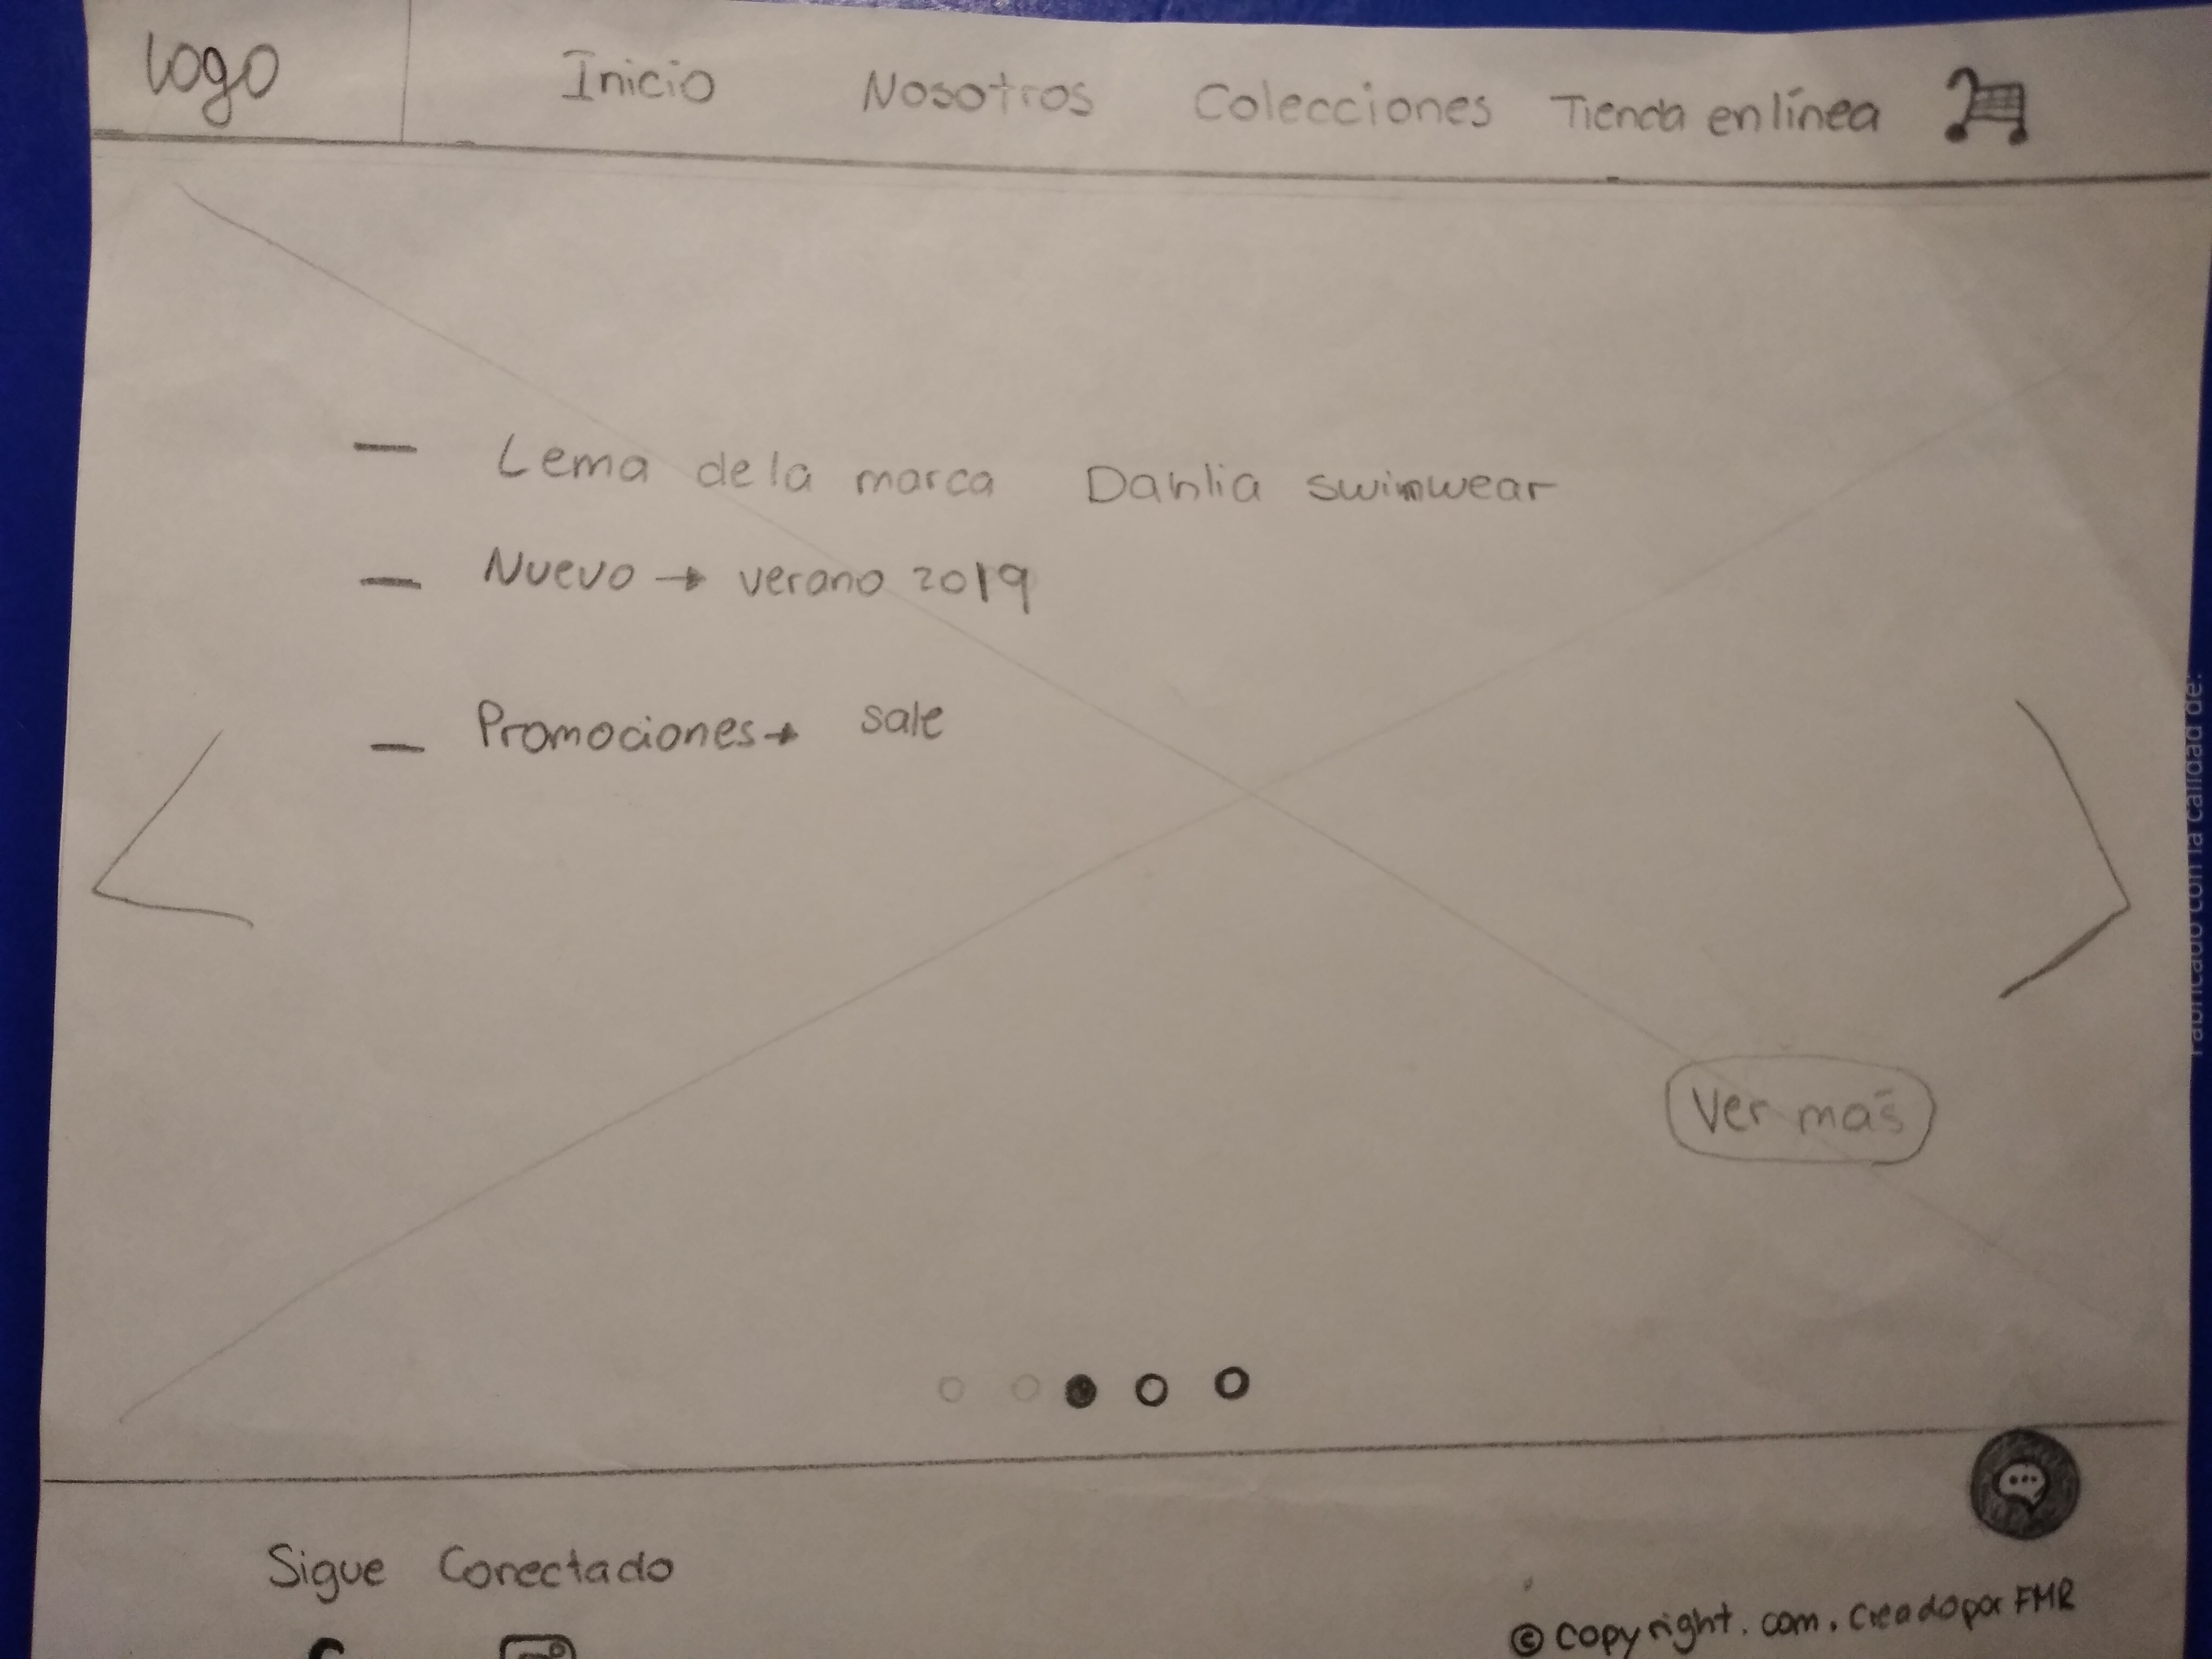 logo
Inicio Nosotros Colecciones Tienda en línea
— Lema de la marca Dahlia swimwear
— Nuevo → verano 2019
— Promociones → sale
Ver más
Sigue Conectado
© copyright.com. Creado por FMR
Fabricado con la calidad de: